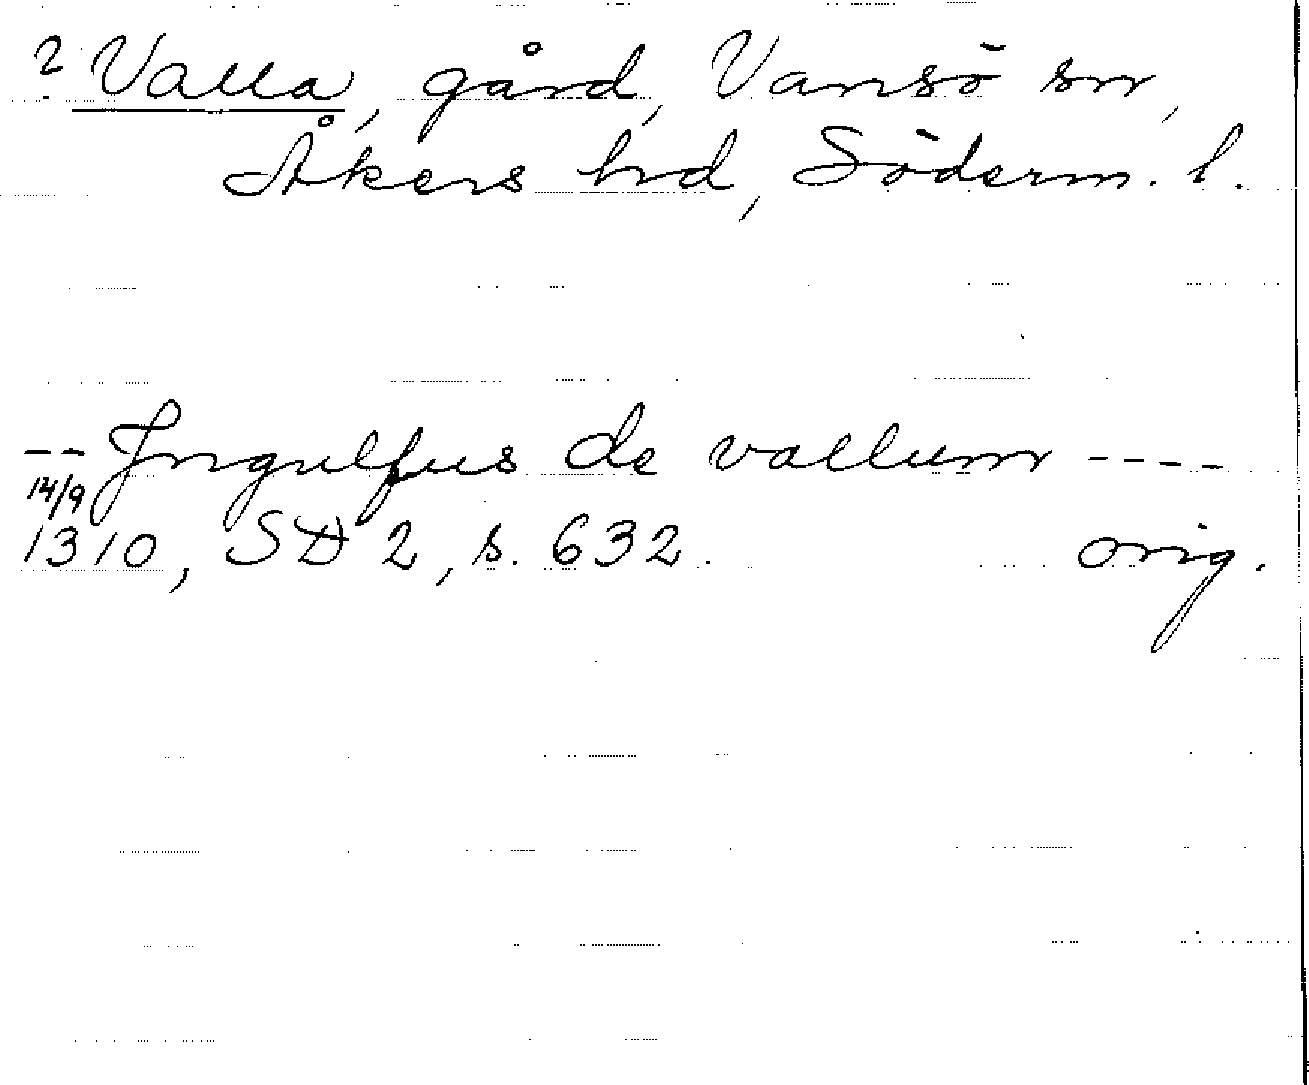 ? Valla, gård, Vansö sn,
Åkers hd, Söderm. l.
-- Jngulfus de vallum ----
14/9
1310, SD 2, s. 632. orig.